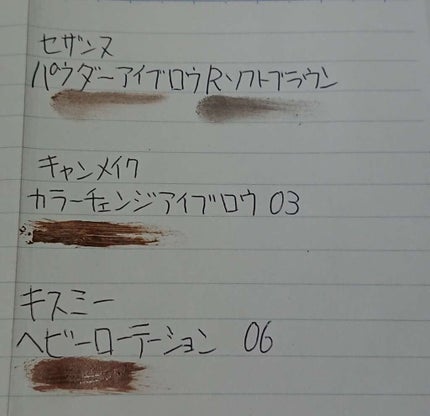 セザンヌ
パウダーアイブロウRソフトブラウン
キャンメイク
カラーチェンジアイブロウ 03
キスミー
ヘビーローテーション 06